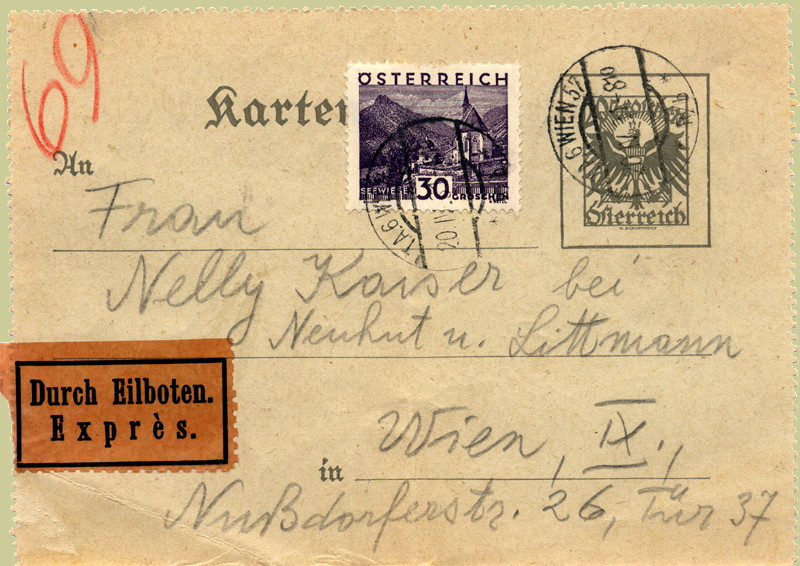 69
Karten
ÖSTERREICH
SEEWIESEN 30 GROSCHEN
WIEN 57
Österreich
An
Frau
Nelly Kaiser bei
Neuhut u. Littmann
Durch Eilboten.
Exprès.
Wien, IX.,
in
Nußdorferstr. 26, Tür 37